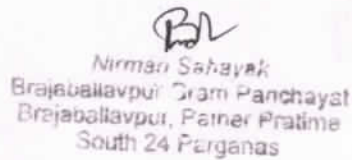 Nirman Sahayak
Brajaballavpur Gram Panchayat
Brajaballavpur, Patner Pratime
South 24 Parganas